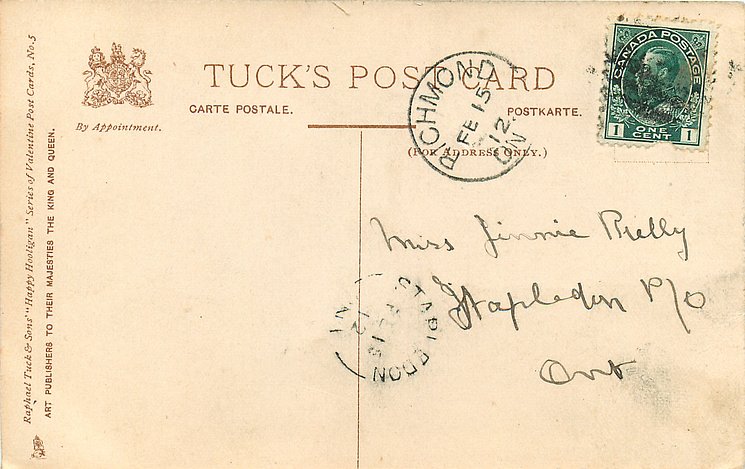 TUCK'S POST CARD
CARTE POSTALE.
POSTKARTE.
(FOR ADDRESS ONLY.)
By Appointment.
Raphael Tuck & Sons' "Happy Hooligan" Series of Valentine Post Cards, No. 5
ART PUBLISHERS TO THEIR MAJESTIES THE KING AND QUEEN.
CANADA POSTAGE
1 ONE CENT 1
RICHMOND
FE 15
12
ON
Miss Jinnie Rielly
Stapledon P/O
Ont
STAPLEDON
12